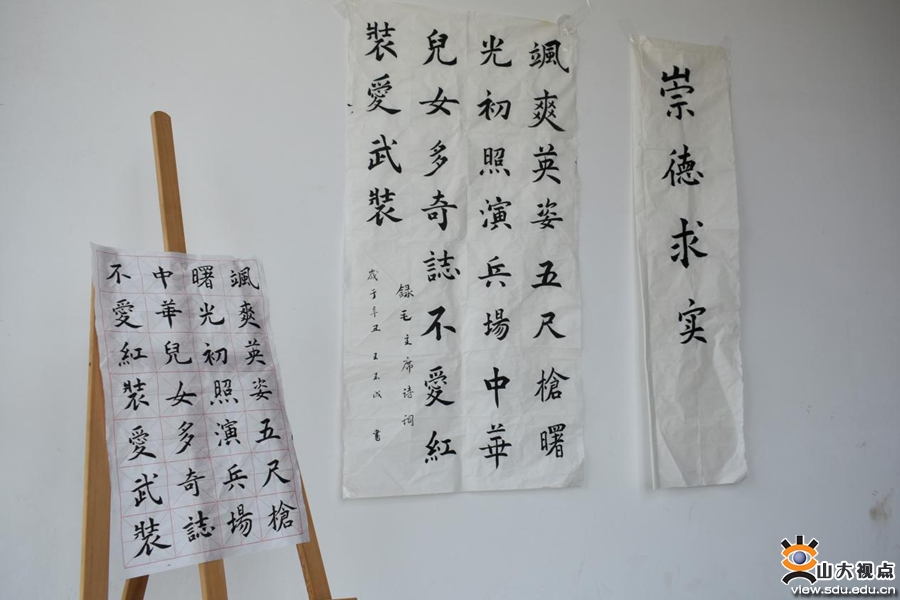 颯爽英姿五尺槍
曙光初照演兵場
中華兒女多奇誌
不愛紅裝愛武裝
颯爽英姿五尺槍曙
光初照演兵場中華
兒女多奇誌不愛紅
裝愛武裝
錄毛主席诗词
崇德求实
山大视点
view.sdu.edu.cn